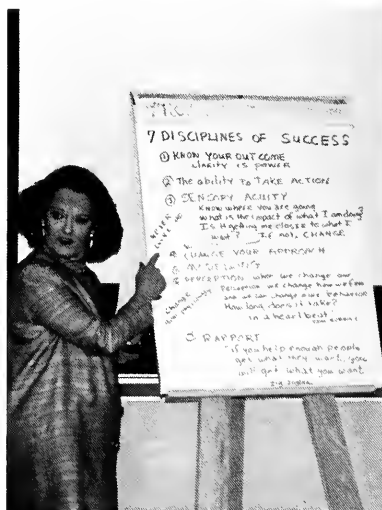 7 DISCIPLINES OF SUCCESS
① KNOW YOUR OUTCOME
CLARITY IS POWER
② The ability TO TAKE ACTION
③ SENSORY ACUITY
Know where you are going
what is the impact of what I am doing?
Is it getting me closer to what I
want? If not, CHANGE
NEVER
GIVE UP
CHANGE YOUR APPROACH
PERCEPTION when we change our
perception we change how we feel
and we can change our behavior
How long does it take?
in a heartbeat
Change
RAPPORT
"if you help enough people
get what they want, you
will get what you want